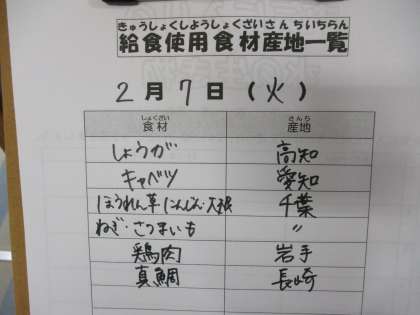 きゅうしょくしようしょくざいさんちいちらん
給食使用食材産地一覧
2月7日(火)
しょくざい さんち
食材 産地
しょうが 高知
キャベツ 愛知
ほうれん草 にんじん・大根 千葉
ねぎ・さつまいも 〃
鶏肉 岩手
真鯛 長崎